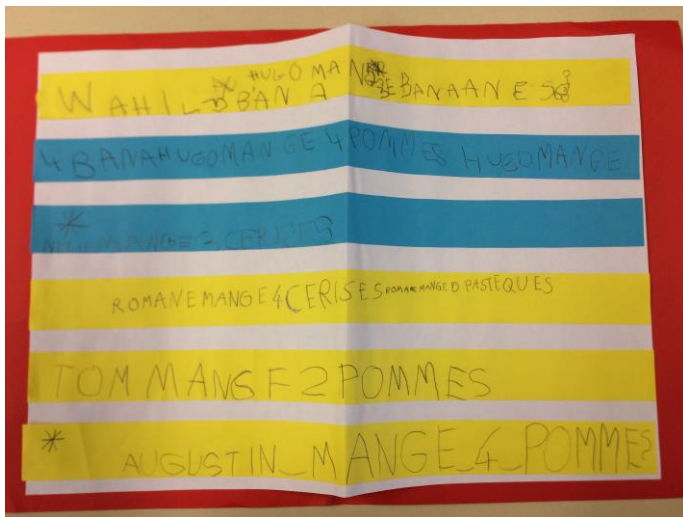 HUGO MANGE BANAANES
WAHIL BANA
4 BANAHUGOMANGE 4 POMMES HUGOMANGE
MANGE 2 CERISES
ROMANEMANGE 4 CERISES ROMANEMANGE D PASTEQUES
TOM MANGE 2 POMMES
AUGUSTIN_MANGE_4_POMMES